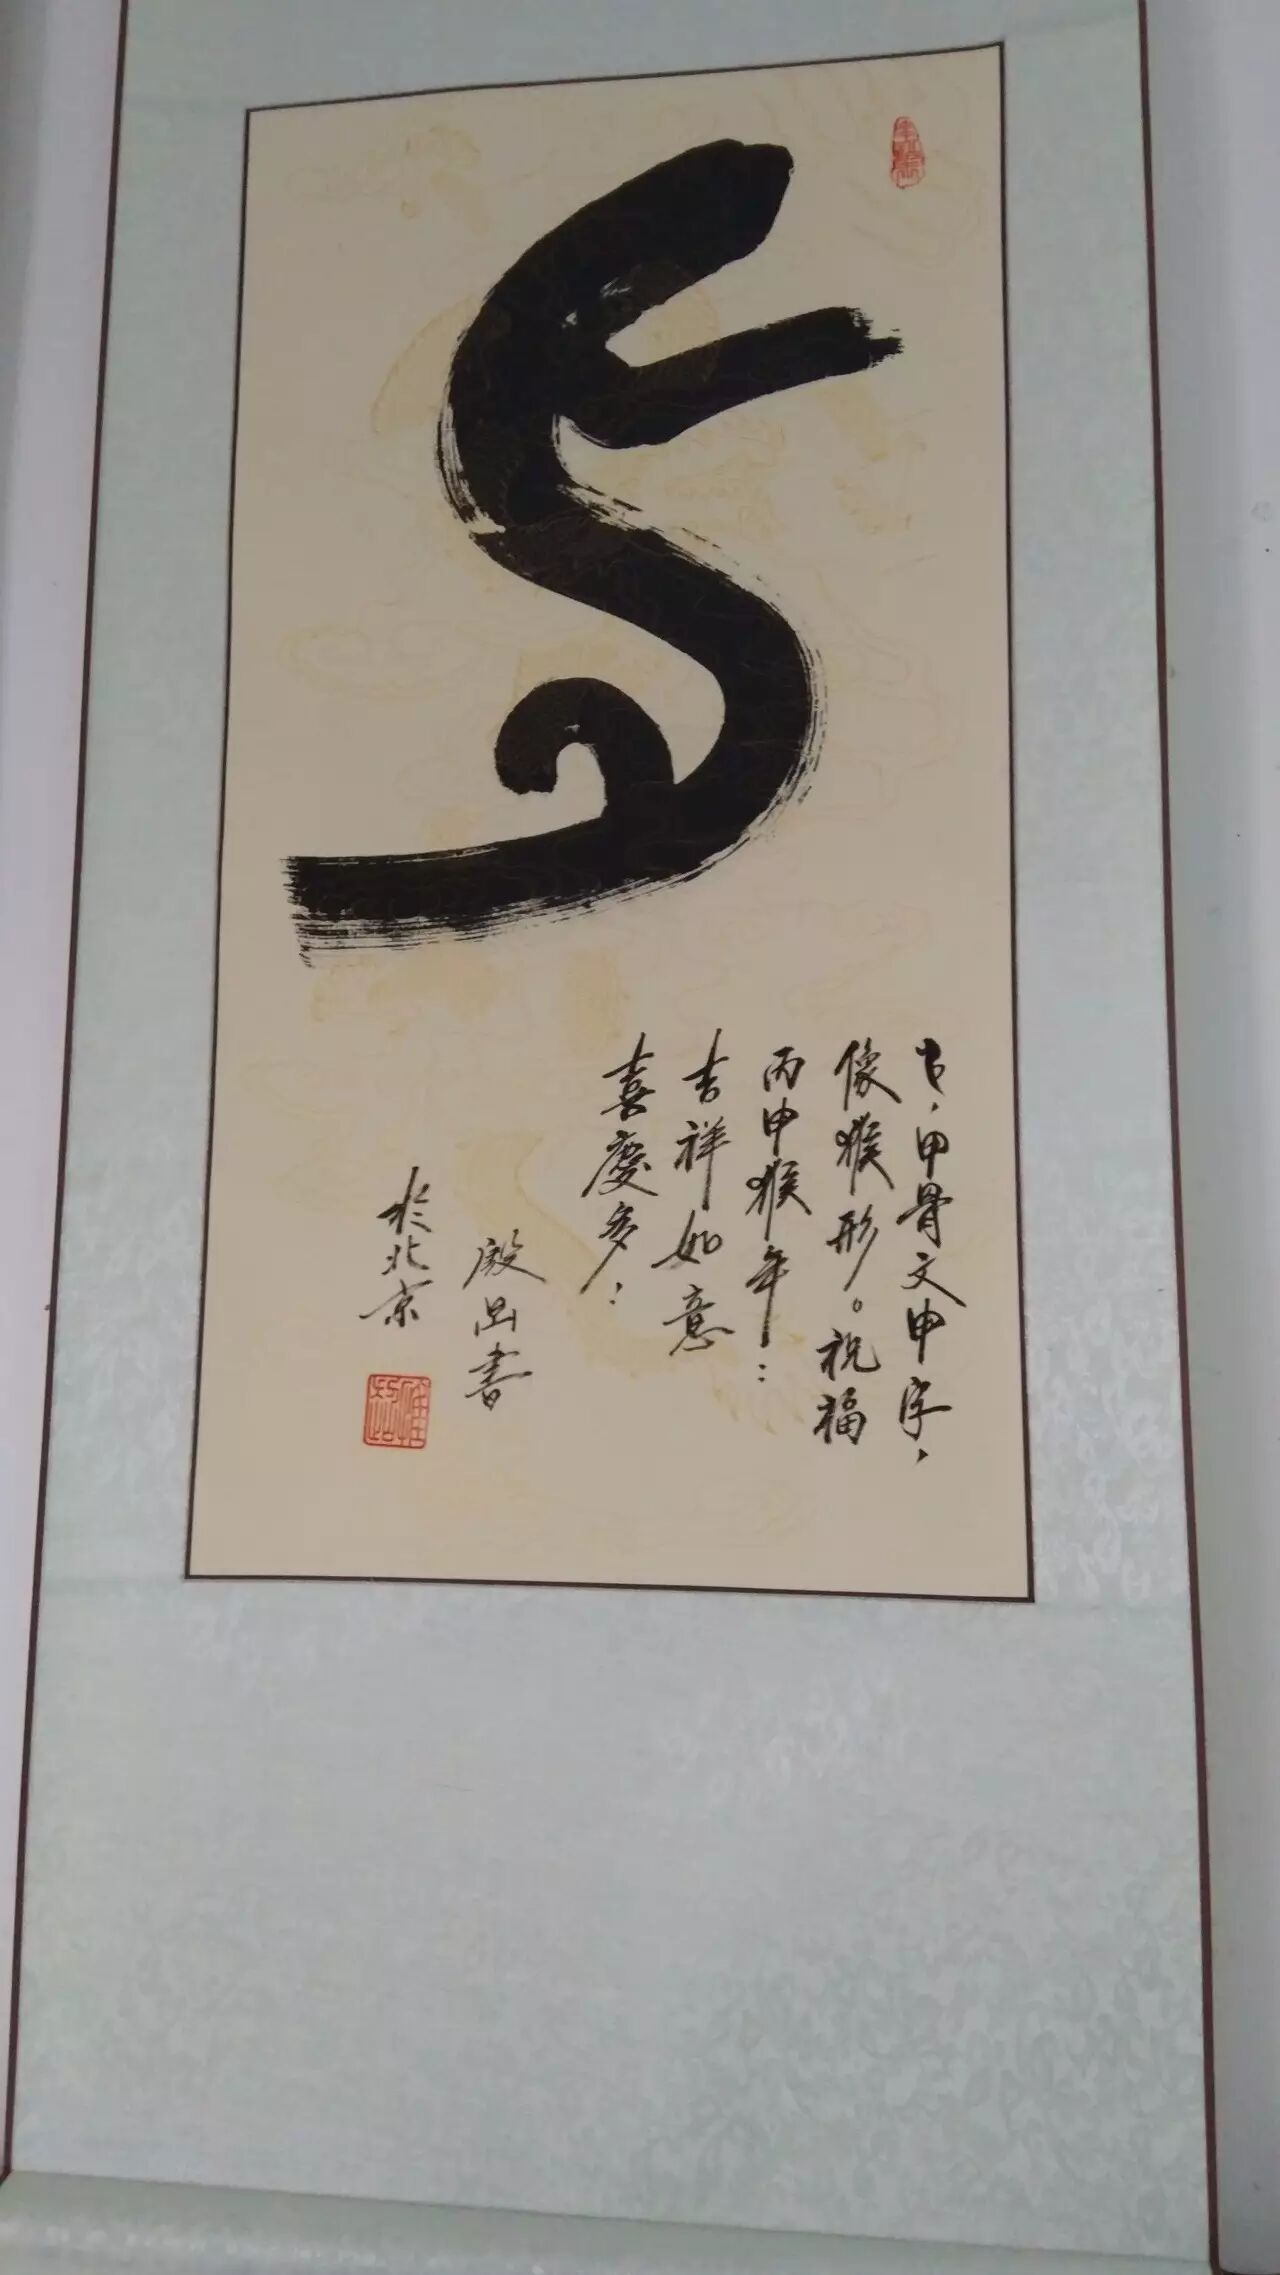 甲骨文申字，
像猴形。祝福
丙申猴年：
吉祥如意
喜慶多：
殿出書
於北京